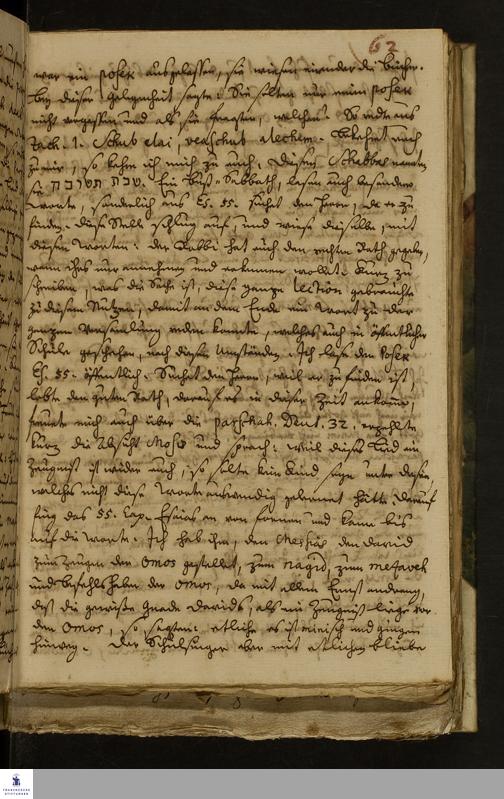 62
war ein posek ausgelassen, sie wiesen einander die Bücher.
Bey dieser gelegenheit sagte: Sie solten nur nun posek
nicht vergessen und als sie fragten, welchen? So redte aus
Zach. 1. Schub elai, veaschub alechem. Bekehret euch
zu mir, so kehre ich mich zu euch. Diesen Schabbas nennen
sie שבת תשובה. Ein Buß-Sabbath, lasen auch besondere
Worte, sonderlich aus Es. 55. suchet den Herrn, da er zu
finden. diese Stelle schlug auf, und wiese dieselbe, mit
diesen Worten: der Rabbi hat euch den rechten Rath gegeben,
wenn ihrs nur annehmen und erkennen wollt. Kurz zu
schreiben, was die Sache ist, diese ganze lection gebrauchte
zu diesem Nutzen, damit an dem Ende ein Wort zu der
ganzen Versamlung reden konnte, welches auch in öffentlicher
Schule geschehen, nach diesen Umständen. Ich lase den posek
Es. 55. öffentlich. Suchet den Herrn, weil er zu finden ist,
lobte den guten Rath, darauf es in dieser Zeit ankomme,
freute mich auch über die parschah. Deut. 32. erzehlte
kurz die absicht Mosis und sprach: weil dieses Lied ein
Zeugniß ist wider euch, so solte kein Kind seyn unter Ihnen,
welches nicht diese Worte auswendig gelernet hätte. Darauf
fing das 55. Cap. Esaias an von fornen und kam bis
auf die Worte: Ich hab ihn, den Messias den David
zum Zeugen der Omos gestellet, zum nagid, zum mezaveh
und befehlshaber der Omos, da mit allem Ernst andrang,
daß die gewisse Gnade Davids, als ein Zeugniß liege vor
den Omos, so sagten: etliche es ist minisch und gingen
hinweg. Der Schulsinger aber mit etlichen bliebe
FRANCKESCHE STIFTUNGEN